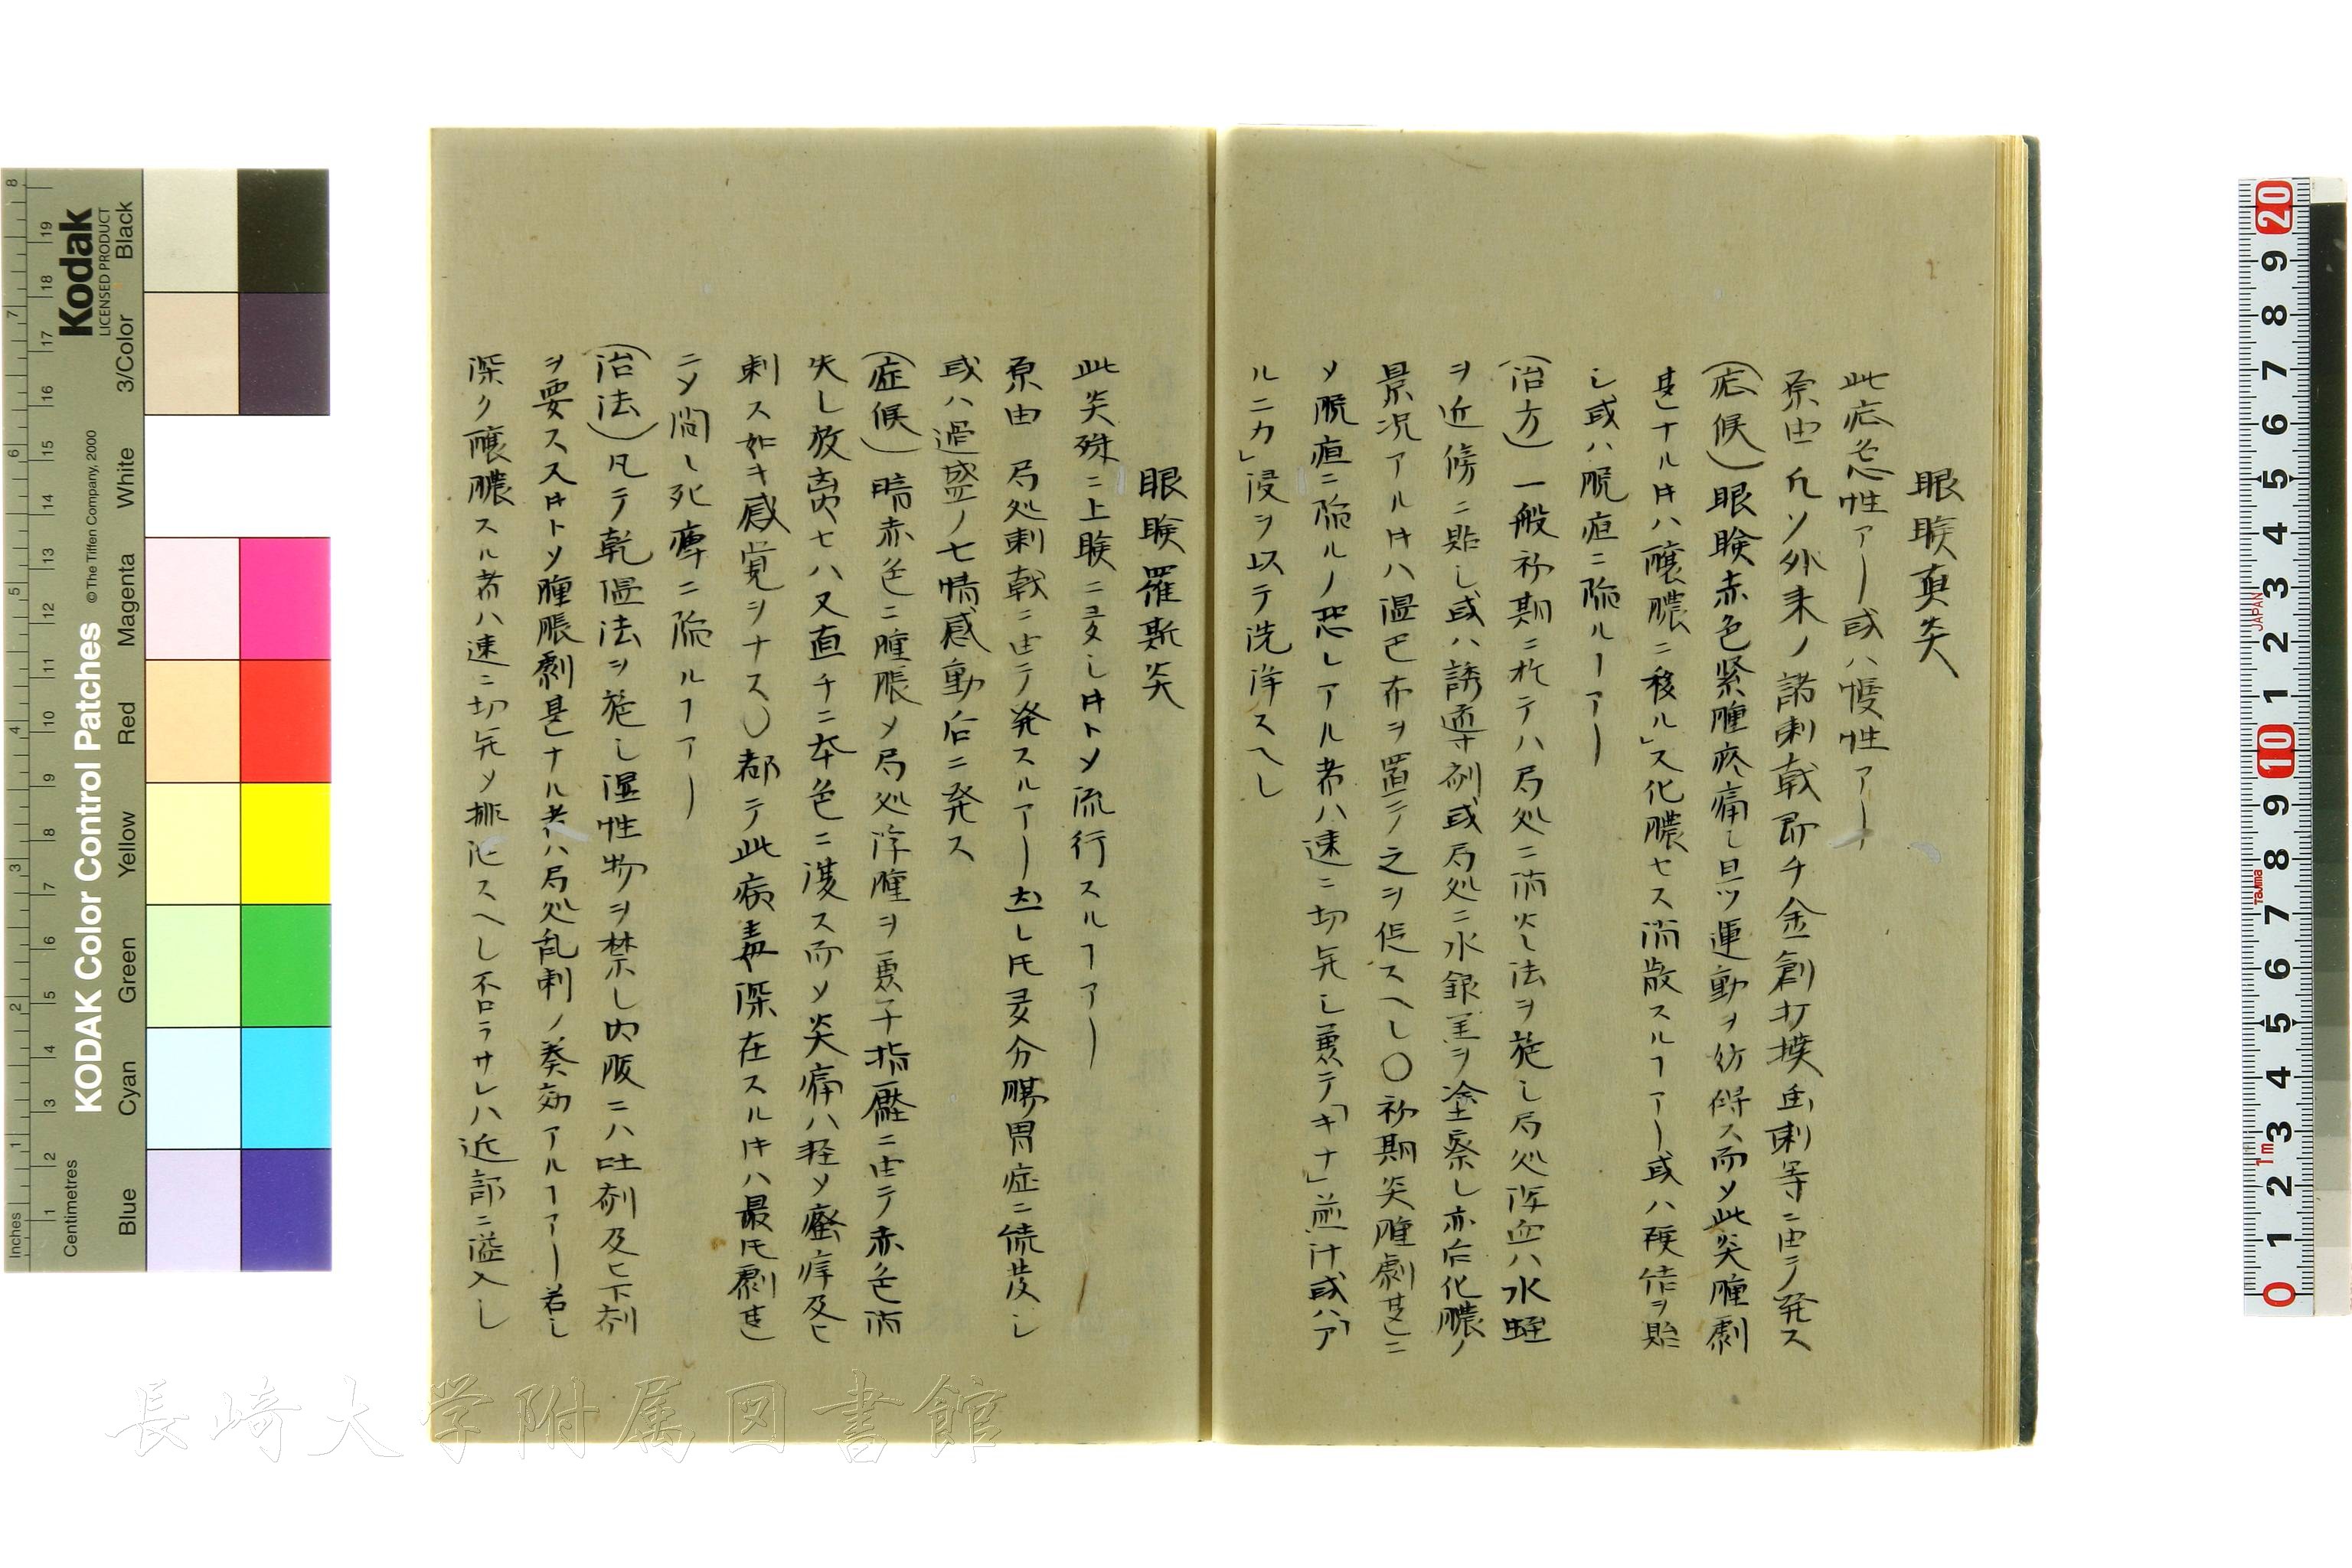 眼瞼真炎
此症急性アー或ハ慢性アー
原由 凡ソ外来ノ諸刺戟即チ金創打撲虫刺等ニ由テ発ス
(症候)眼瞼赤色緊腫疼痛シ且ツ運動ヲ妨碍ス而〆此炎腫劇
甚ナル𪜈ハ醸膿ニ移ル」又化膿セス消散スルヿアー或ハ硬結ヲ貽
シ或ハ脱疽ニ陥ルヿアー
(治方)一般初期ニ於テハ局処ニ消炎法ヲ施シ局処瀉血ハ水蛭
ヲ近傍ニ貼シ或ハ誘導剤或局処ニ水銀膏ヲ塗察シ亦后化膿ノ
景況アル𪜈ハ温巴布ヲ置テ之ヲ促スヘシ〇初期炎腫劇甚ニ
〆脱疽ニ陥ルノ恐レアル者ハ速ニ切開シ兼テ「キナ」煎汁或ハ「ア
ルニカ」浸ヲ以テ洗滌スヘシ
眼瞼羅斯炎
此炎殊ニ上瞼ニ多シ𪜈ト〆流行スルヿアー
原由 局処刺戟ニ由テ発スルアー然レ𪜈多分腸胃症ニ続発シ
或ハ過盛ノ七情感動后ニ発ス
(症候)暗赤色ニ腫脹〆局処浮腫ヲ兼子指壓ニ由テ赤色消
失シ放離セハ又直チニ本色ニ復ス而〆炎痛ハ軽〆瘙痒及ヒ
刺ス如キ感覚ヲナス〇都テ此病毒深在スル𪜈ハ最𪜈劇甚
ニ〆間シ死壊ニ陥ルヿアー
(治法)凡テ乾温法ヲ施シ湿性物ヲ禁シ内服ニハ吐剤及ヒ下剤
ヲ要ス又𪜈ト〆腫脹劇甚ナル者ハ局処乱刺ノ奏効アルヿアー若シ
深ク醸膿スル者ハ速ニ切開〆排泄スヘシ不ロラサレハ近部ニ溢入シ
Kodak
LICENSED PRODUCT
KODAK Color Control Patches
© The Tiffen Company, 2000
Inches
Centimetres
Blue
Cyan
Green
Yellow
Red
Magenta
White
3/Color
Black
長崎大学附属図書館
JAPAN
Tajima
1m